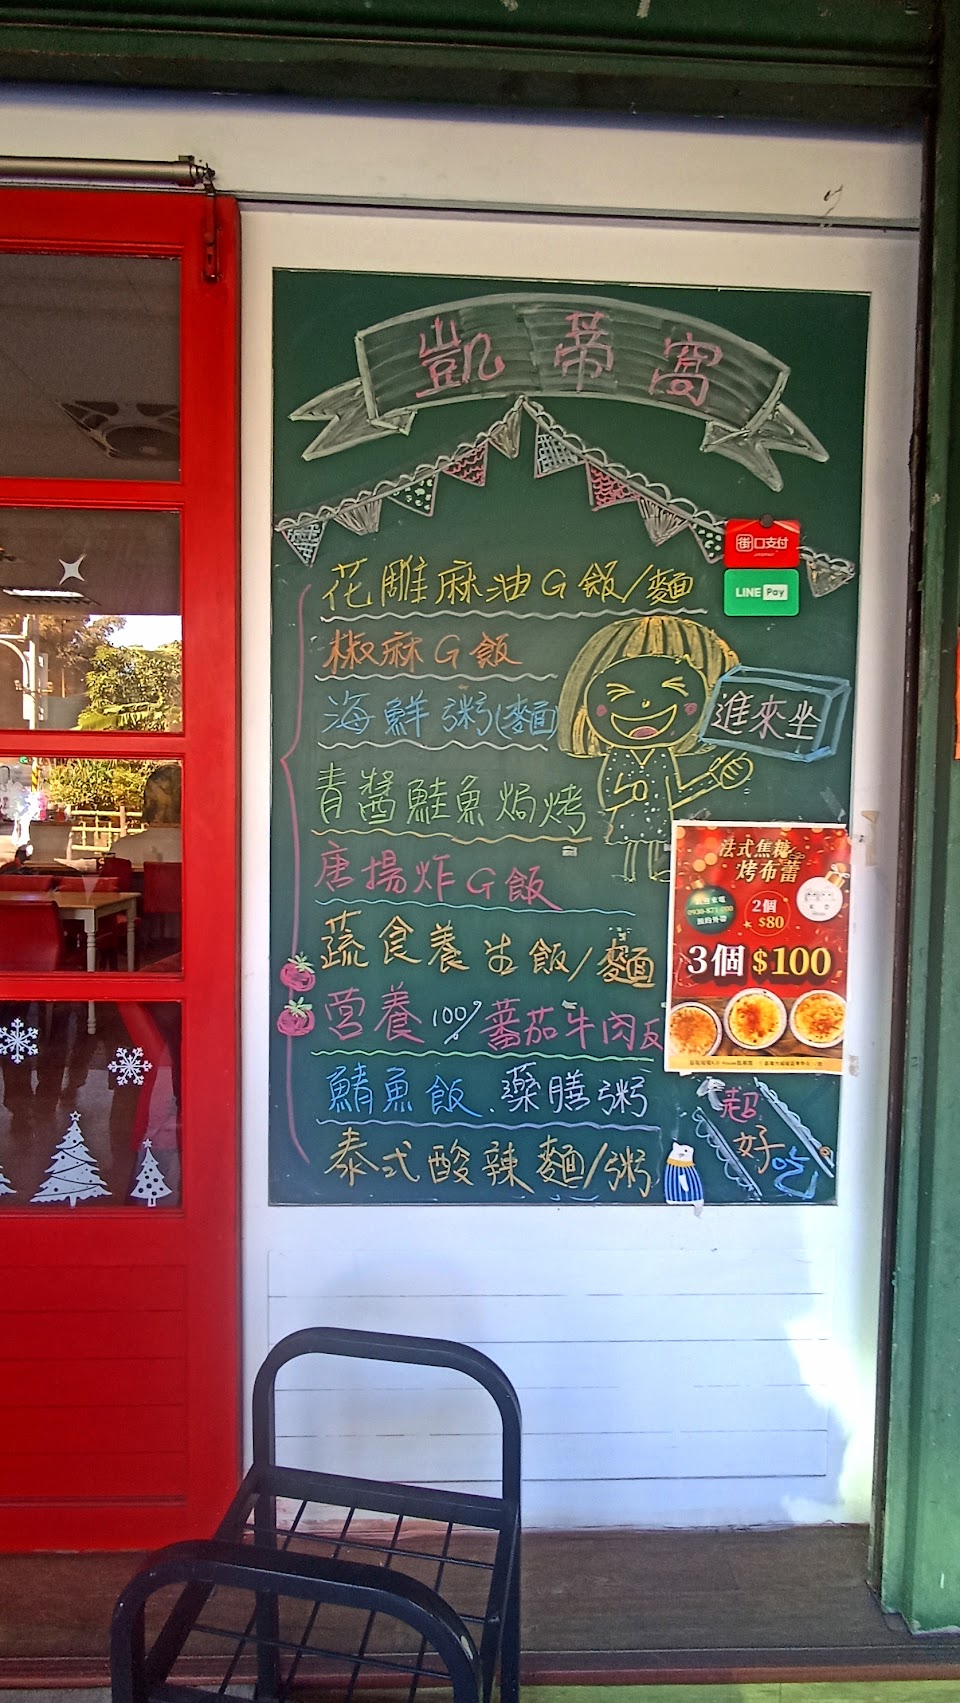 凱蒂窩
街口支付
LINE Pay
花雕麻油G飯/麵
椒麻G飯
海鮮粥(麵)
進來坐
青醬鮭魚焗烤
唐揚炸G飯
蔬食養生飯/麵
營養100%蕃茄牛肉
鯖魚飯、藥膳粥
泰式酸辣麵/粥
超
好
吃
法式焦糖
烤布蕾
2個
$80
3個 $100